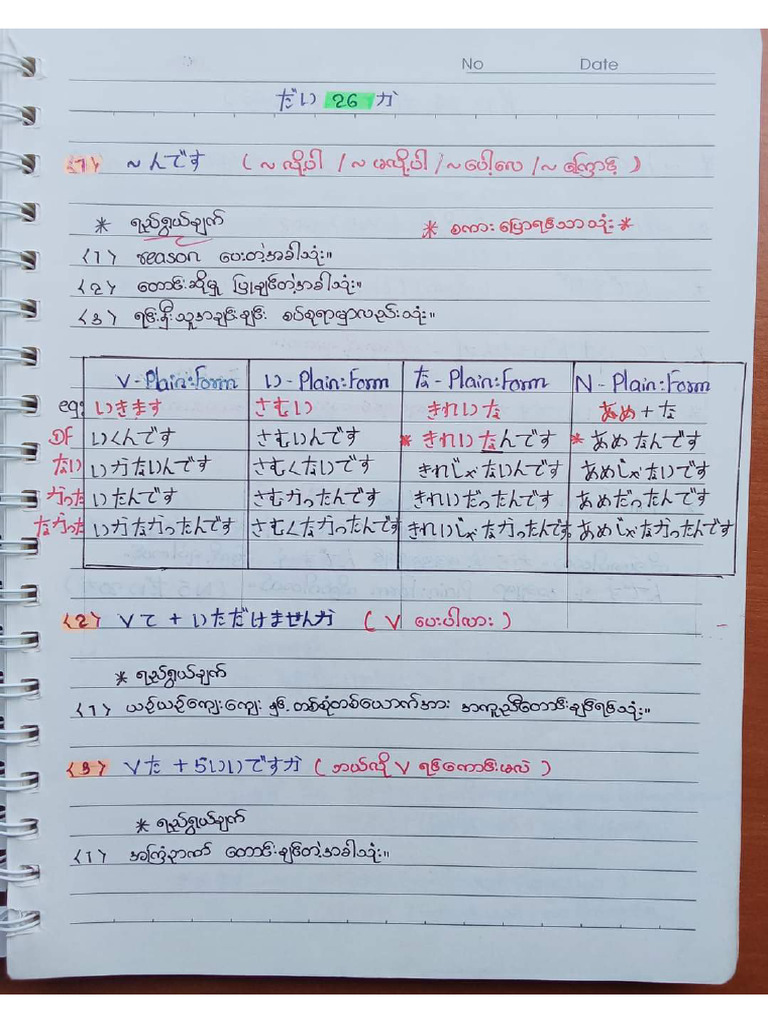 No Date
だい 26 か
〈1〉 ~んです ( ~ လို့ပါ / ~ မလို့ပါ / ~ပေါ့လေ / ~ ကြောင့် )
* ရည်ရွယ်ချက် * စကားပြောရင်သာသုံး *
〈1〉 reason ပေးတဲ့အခါသုံး။
〈2〉 တောင်းဆိုမှု ပြုချင်တဲ့အခါသုံး။
〈3〉 ရင်းနှီးသူအချင်းချင်း စပ်စုရာမှာလည်းသုံး။
V-Plain:Form い-Plain:Form な-Plain:Form N-Plain:Form
eg: いきます さむい きれいな あめ+な
DF いくんです さむいんです * きれいなんです * あめなんです
ない いかないんです さむくないです きれじゃないんです あめじゃないです
かった いたんです さむかったんです きれいだったんです あめだったんです
なかった いかなかったんです さむくなかったんです きれいじゃなかったんです。 あめじゃなかったんです
〈2〉 Vて + いただけませんか ( V ပေးပါလား )
* ရည်ရွယ်ချက်
〈1〉 ယဉ်ယဉ်ကျေးကျေး နှင့် တစ်စုံတစ်ယောက်အား အကူညီတောင်းချင်ရင်သုံး။
〈3〉 Vた + らいいですか ( ဘယ်လို V ရင်ကောင်းမလဲ )
* ရည်ရွယ်ချက်
〈1〉 အကြံဉာဏ် တောင်းချင်တဲ့အခါသုံး။